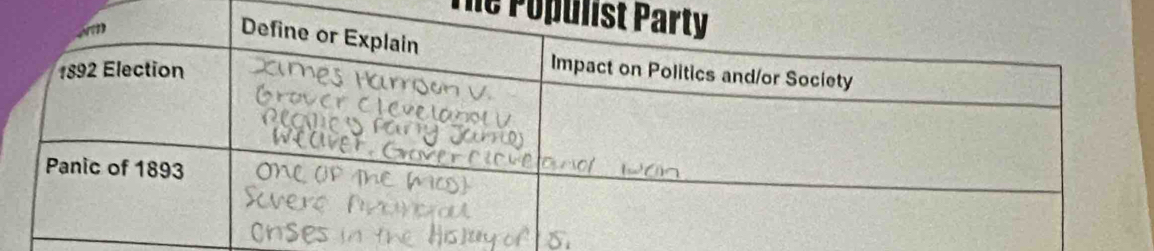 The Populist Party
Define or Explain
Impact on Politics and/or Society
1892 Election
James Harrison v.
Grover Cleveland v
Party James
Weaver. Grover Cleveland won
Panic of 1893
one of the most
severe financial
crises in the History of